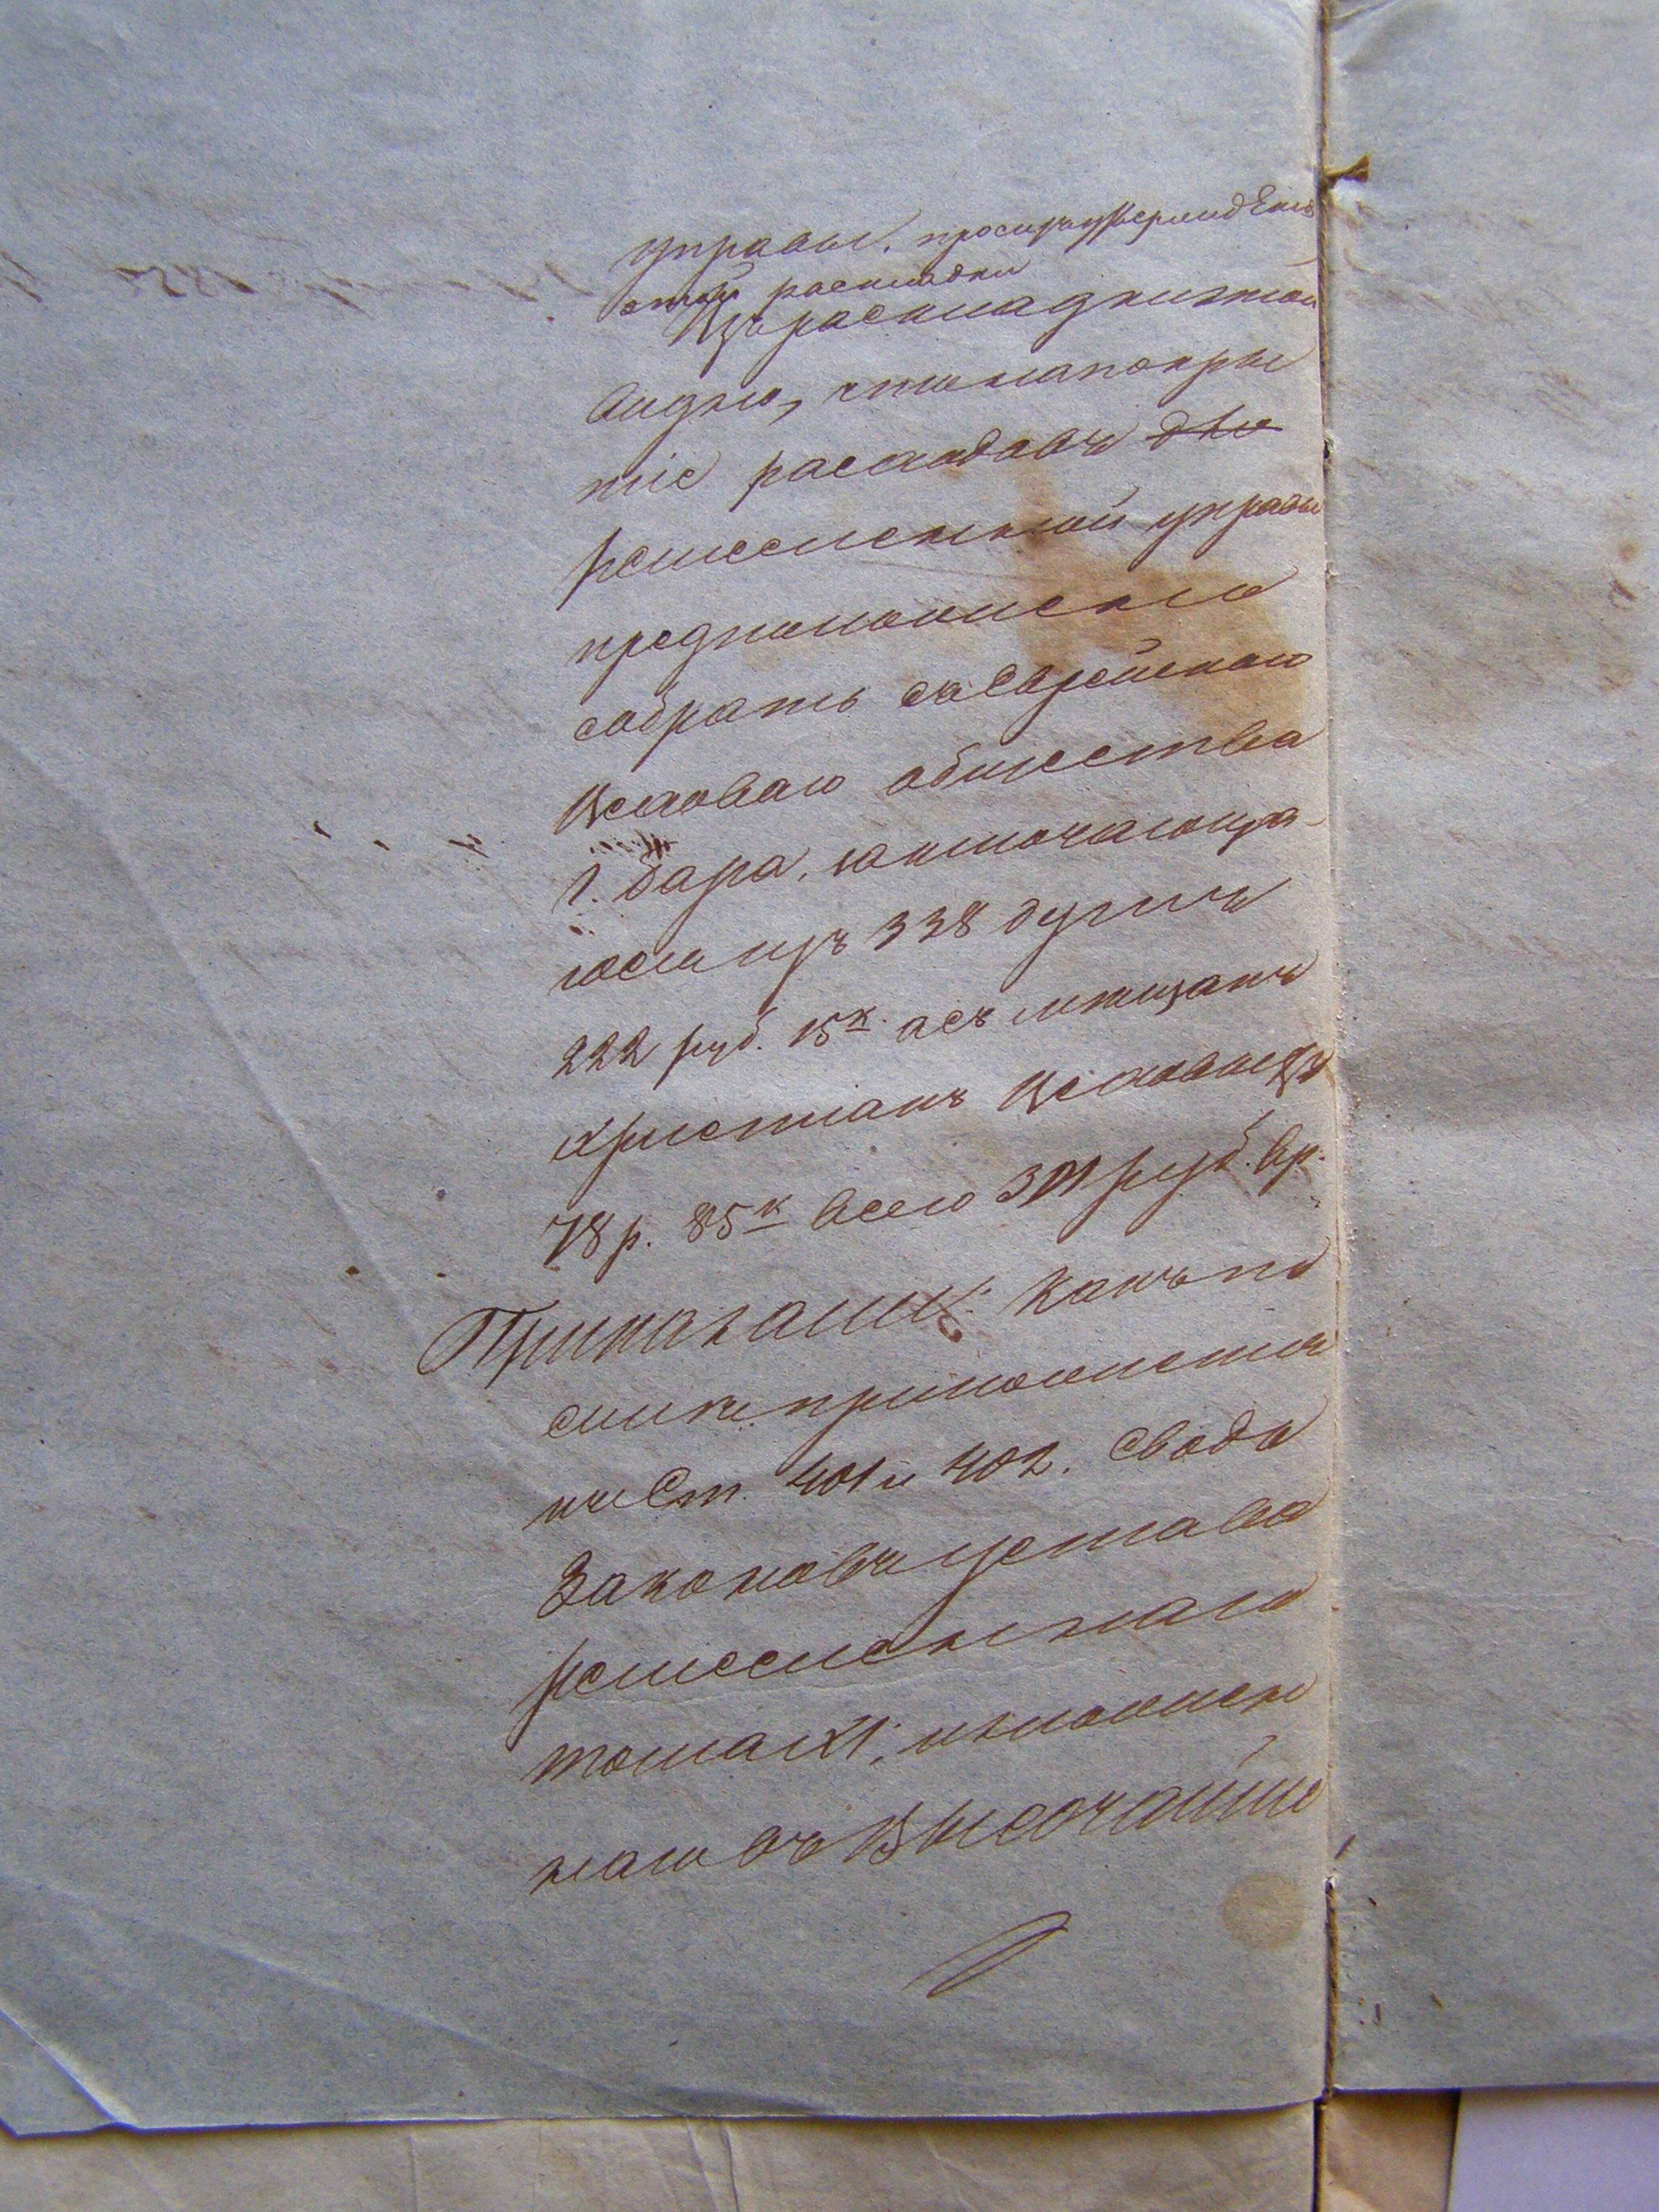 управы. просить утвержденія
этой раскладки
Изъ раскладки этой
видно, что на покры
тіе расходовъ для
ремесленной управы
предположено
собрать съ Еврейскаго
Цеховаго общества
г. Бара, заключающа
гося изъ 338 душъ
222 руб. 15 к. а съ мѣщанъ
христіанъ Цеховыхъ
78 р. 85 к всего 301 руб. ср.
Приказали: Какъ по
силѣ приложенія
къ Ст. 401 и 402. Свода
Законовъ устава
ремесленнаго
тома XI, изложен
наго въ Высочайше